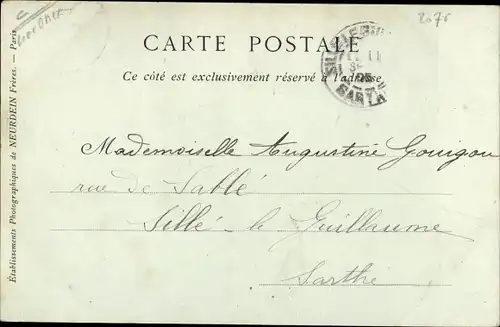 2076
CARTE POSTALE
Ce côté est exclusivement réservé à l'adresse
SILLÉ-LE-GUIL
SARTHE
Mademoiselle Augustine Gouigou
rue de Sablé
Sillé-le Guillaume
Sarthe
Établissements Photographiques de NEURDEIN Frères. — Paris.